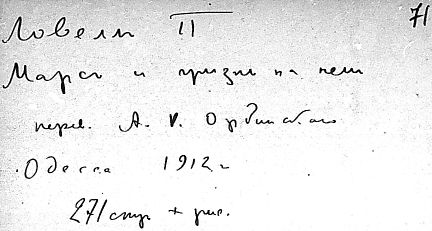 Ловелл II 71
Марс и жизнь на нем
перев. А. V. Ординского
Одесса 1912 г
271 стр + рис.